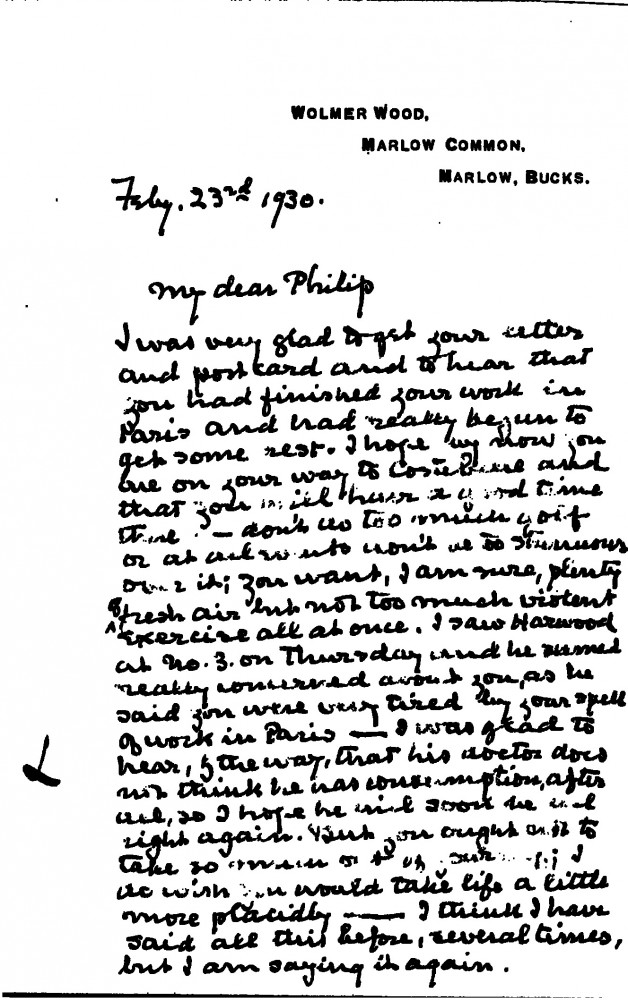 WOLMER WOOD,
MARLOW COMMON,
MARLOW, BUCKS.
Feby. 23rd 1930.
My dear Philip
I was very glad to get your letter
and postcard and to hear that
you had finished your work in
Paris and had really begun to
get some rest. I hope by now you
are on your way to and
that you will have a good time
there — don't do too much golf
or at all events don't be too strenuous
over it; you want, I am sure, plenty
of fresh air but not too much violent
exercise all at once. I saw Harwood
at No. 3. on Thursday and he seemed
really concerned about you, as he
said you were very tired by your spell
of work in Paris — I was glad to
hear, by the way, that his doctor does
not think he has consumption, after
all, so I hope he will soon be all
right again. But you ought not to
take so much out of ; I
do wish you would take life a little
more placidly — I think I have
said all this before, several times,
but I am saying it again.